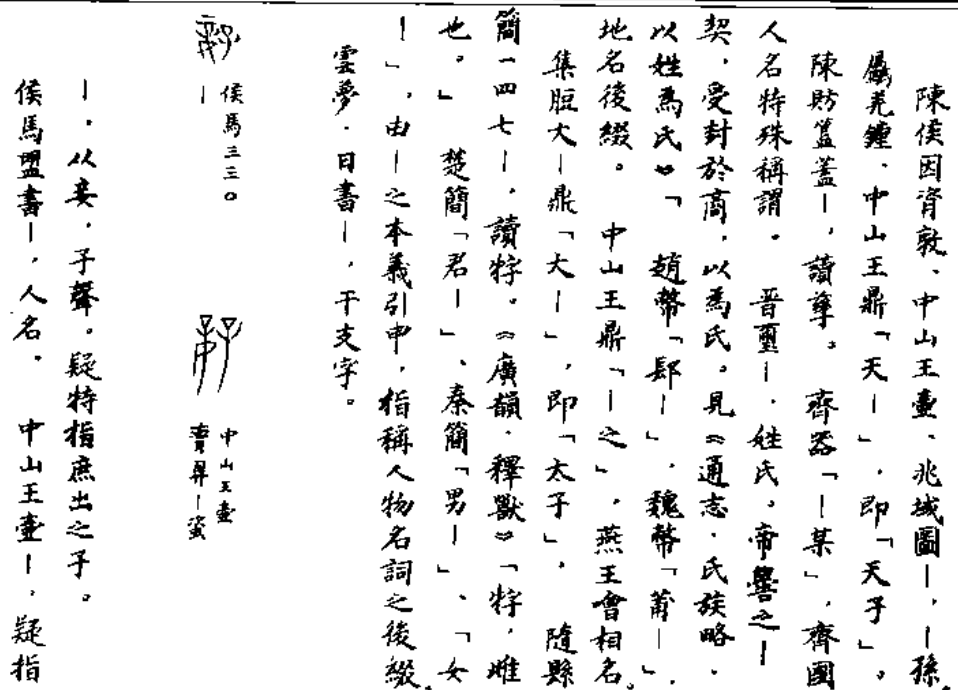 陳侯因𬯎敦、中山王壺、兆域圖丨，丨孫。
屭羌鐘、中山王鼎「天丨」，即「天子」。
陳財簋蓋丨，讀孳。 齊器「丨某」，齊國
人名特殊稱謂。 晋璽丨，姓氏。帝嚳之丨
契，受封於商，以爲氏。見《通志·氏族略·
以姓爲氏》「 趙幣「郻丨」，魏幣「莆丨」，
地名後綴。 中山王鼎「丨之」，燕王會相名。
集脰大丨鼎「大丨」，即「太子」， 隨縣
簡一四七丨，讀牸。《廣韻·釋獸》「牸，雌
也。」 楚簡「君丨」、秦簡「男丨」、「女
丨」，由丨之本義引申，指稱人物名詞之後綴。
雲夢·日書丨，干支字。
丨 侯馬三三。
中山王壺
賣昇丨𧶜
丨，从妾，子聲。疑特指庶出之子。
侯馬盟書丨，人名。 中山王壺丨，疑指